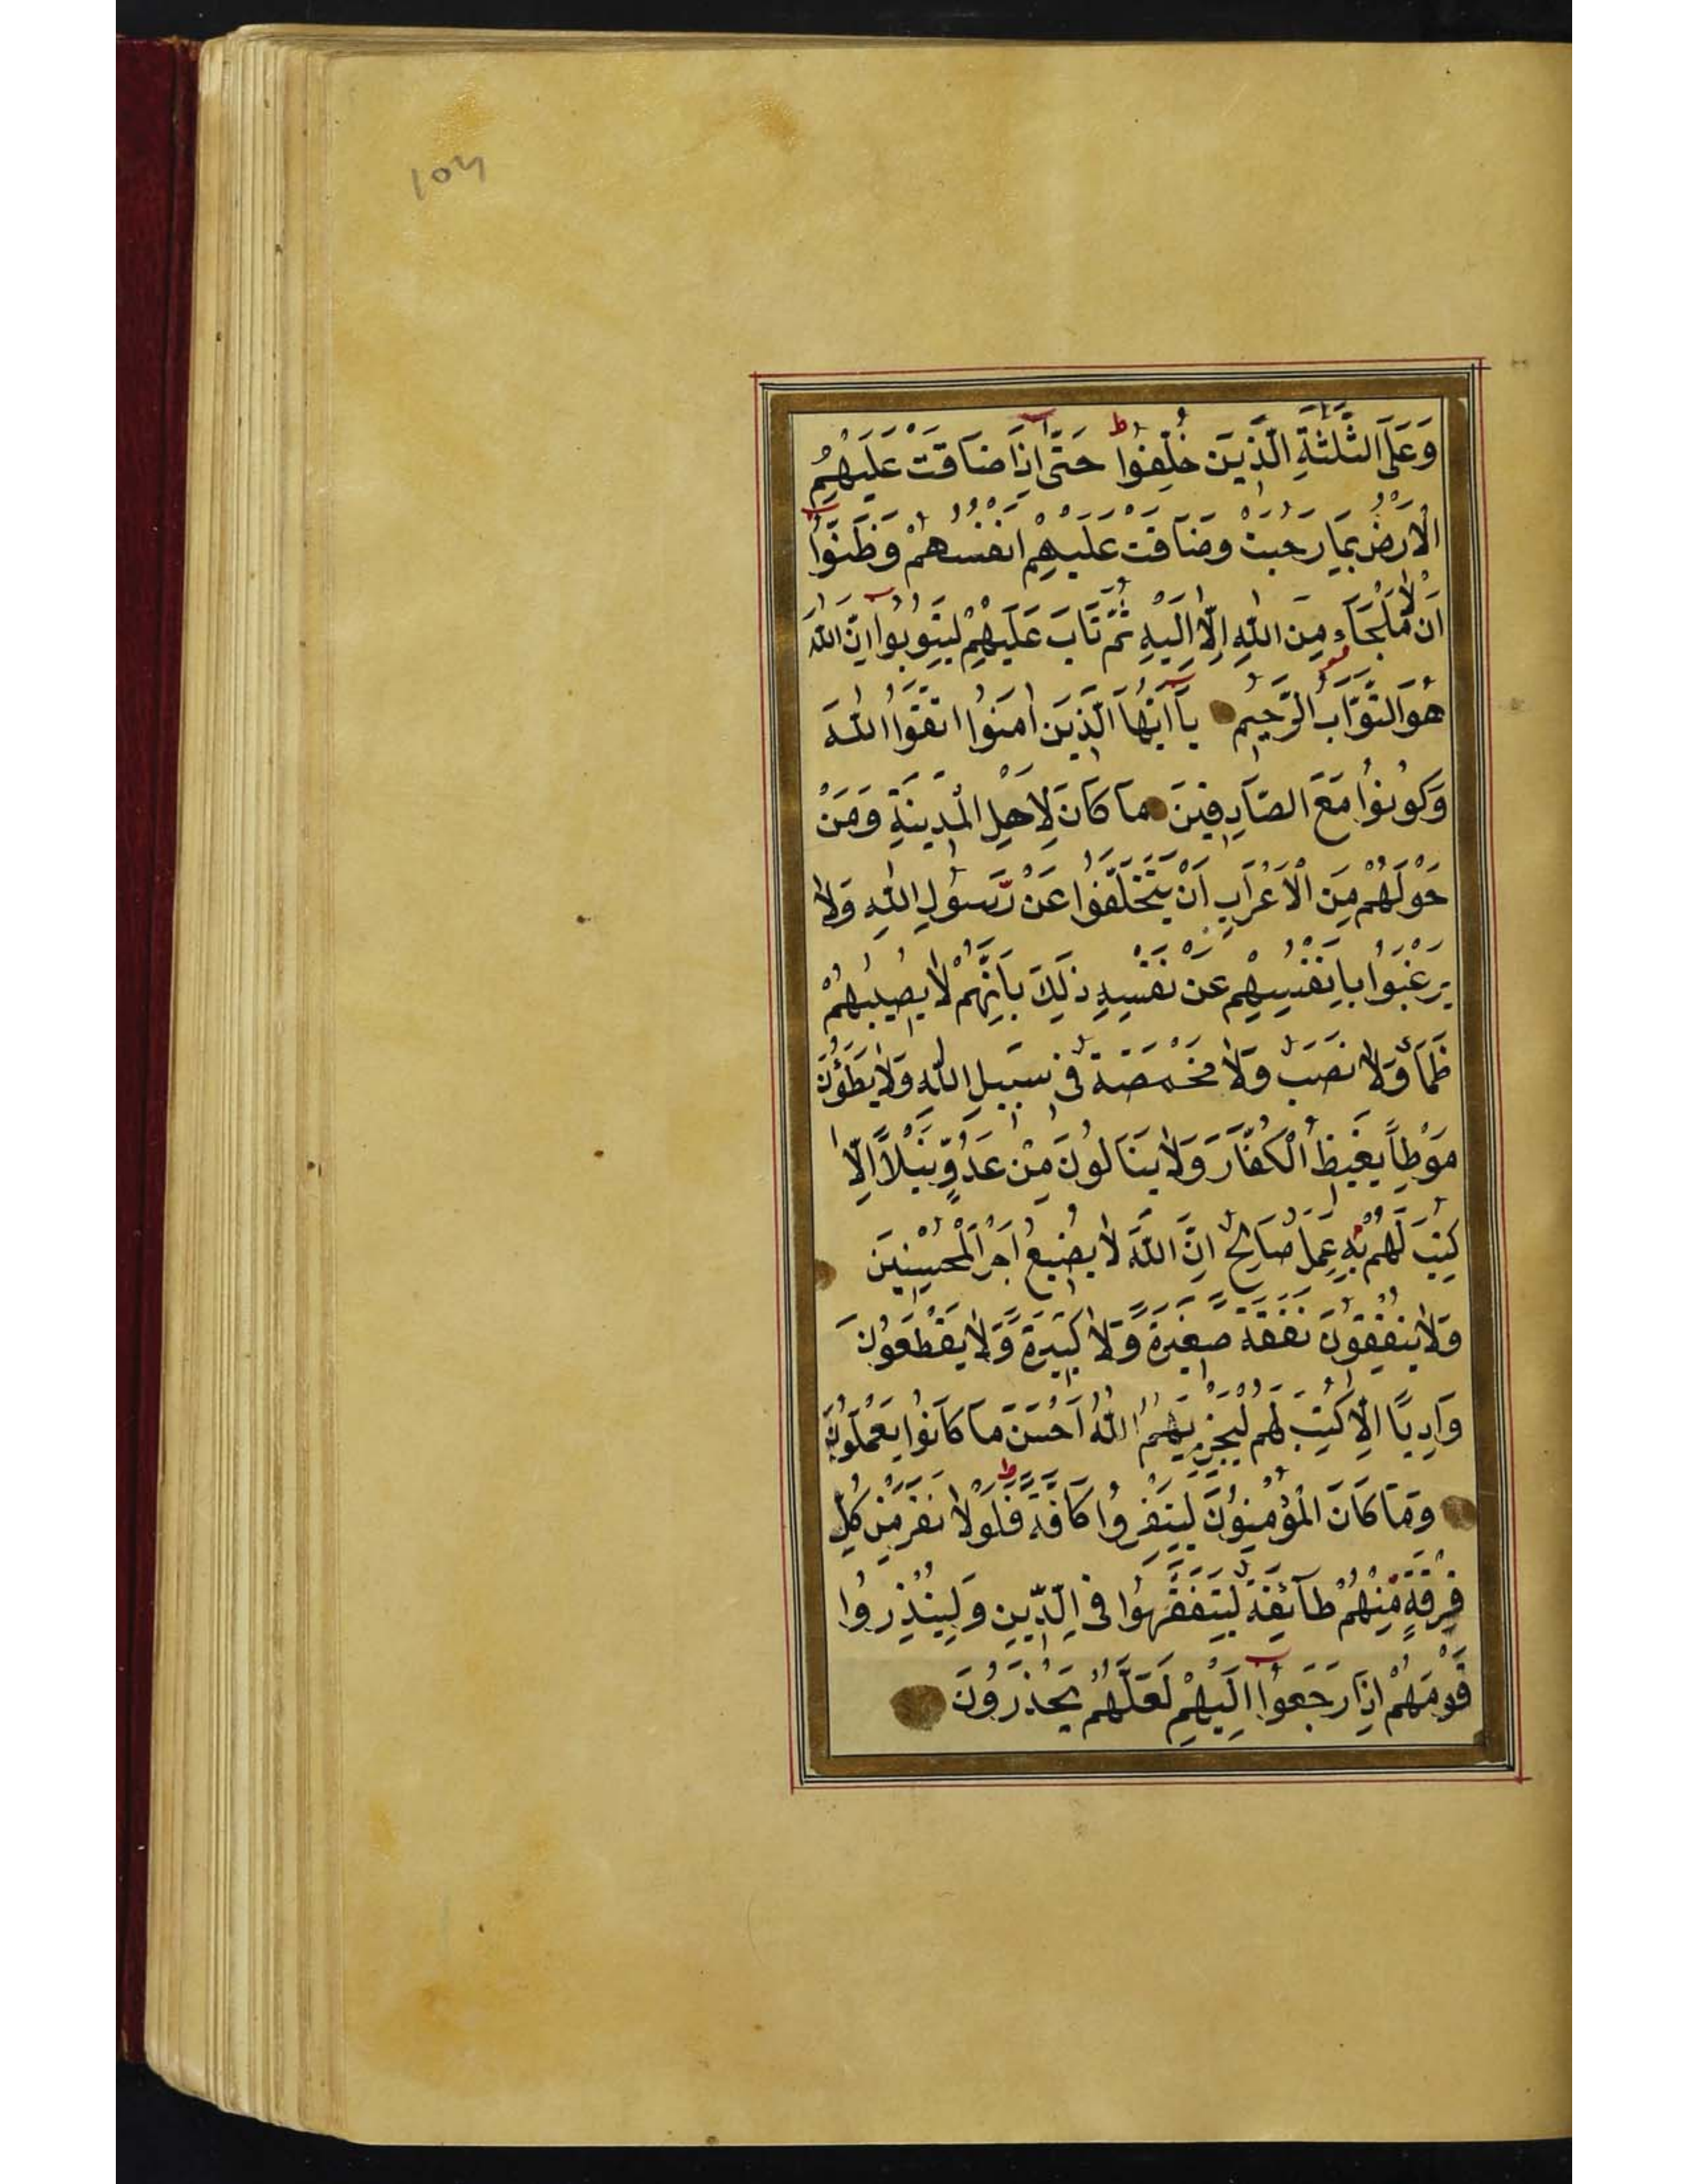 104
وَعَلَى الثَّلٰثَةِ الَّذِينَ خُلِّفُوا ط حَتَّى اِذَا ضَاقَتْ عَلَيْهِمُ
الْاَرْضُ بِمَا رَحُبَتْ وَضَاقَتْ عَلَيْهِمْ اَنْفُسُهُمْ وَظَنُّوا
اَنْ لَّا مَلْجَاءَ مِنَ اللّٰهِ اِلَّا اِلَيْهِ ثُمَّ تَابَ عَلَيْهِمْ لِيَتُوبُوا اِنَّ اللّٰهَ
هُوَ التَّوَّابُ الرَّحِيمُ يَا اَيُّهَا الَّذِينَ اٰمَنُوا اتَّقُوا اللّٰهَ
وَكُونُوا مَعَ الصَّادِقِينَ مَا كَانَ لِاَهْلِ الْمَدِينَةِ وَمَنْ
حَوْلَهُمْ مِنَ الْاَعْرَابِ اَنْ يَتَخَلَّفُوا عَنْ رَسُولِ اللّٰهِ وَلَا
يَرْغَبُوا بِاَنْفُسِهِمْ عَنْ نَفْسِهِ ذٰلِكَ بِاَنَّهُمْ لَا يُصِيبُهُمْ
ظَمَأٌ وَلَا نَصَبٌ وَلَا مَخْمَصَةٌ فِى سَبِيلِ اللّٰهِ وَلَا يَطَؤُنَ
مَوْطِأً يَغِيظُ الْكُفَّارَ وَلَا يَنَالُونَ مِنْ عَدُوٍّ نَيْلًا اِلَّا
كُتِبَ لَهُمْ بِهِ عَمَلٌ صَالِحٌ اِنَّ اللّٰهَ لَا يُضِيعُ اَجْرَ الْمُحْسِنِينَ
وَلَا يُنْفِقُونَ نَفَقَةً صَغِيرَةً وَّلَا كَبِيرَةً وَّلَا يَقْطَعُونَ
وَادِيًا اِلَّا كُتِبَ لَهُمْ لِيَجْزِيَهُمُ اللّٰهُ اَحْسَنَ مَا كَانُوا يَعْمَلُونَ
وَمَا كَانَ الْمُؤْمِنُونَ لِيَنْفِرُوا كَافَّةً ط فَلَوْلَا نَفَرَ مِنْ كُلِّ
فِرْقَةٍ مِنْهُمْ طَآئِفَةٌ لِيَتَفَقَّهُوا فِى الدِّينِ وَلِيُنْذِرُوا
قَوْمَهُمْ اِذَا رَجَعُوا اِلَيْهِمْ لَعَلَّهُمْ يَحْذَرُونَ